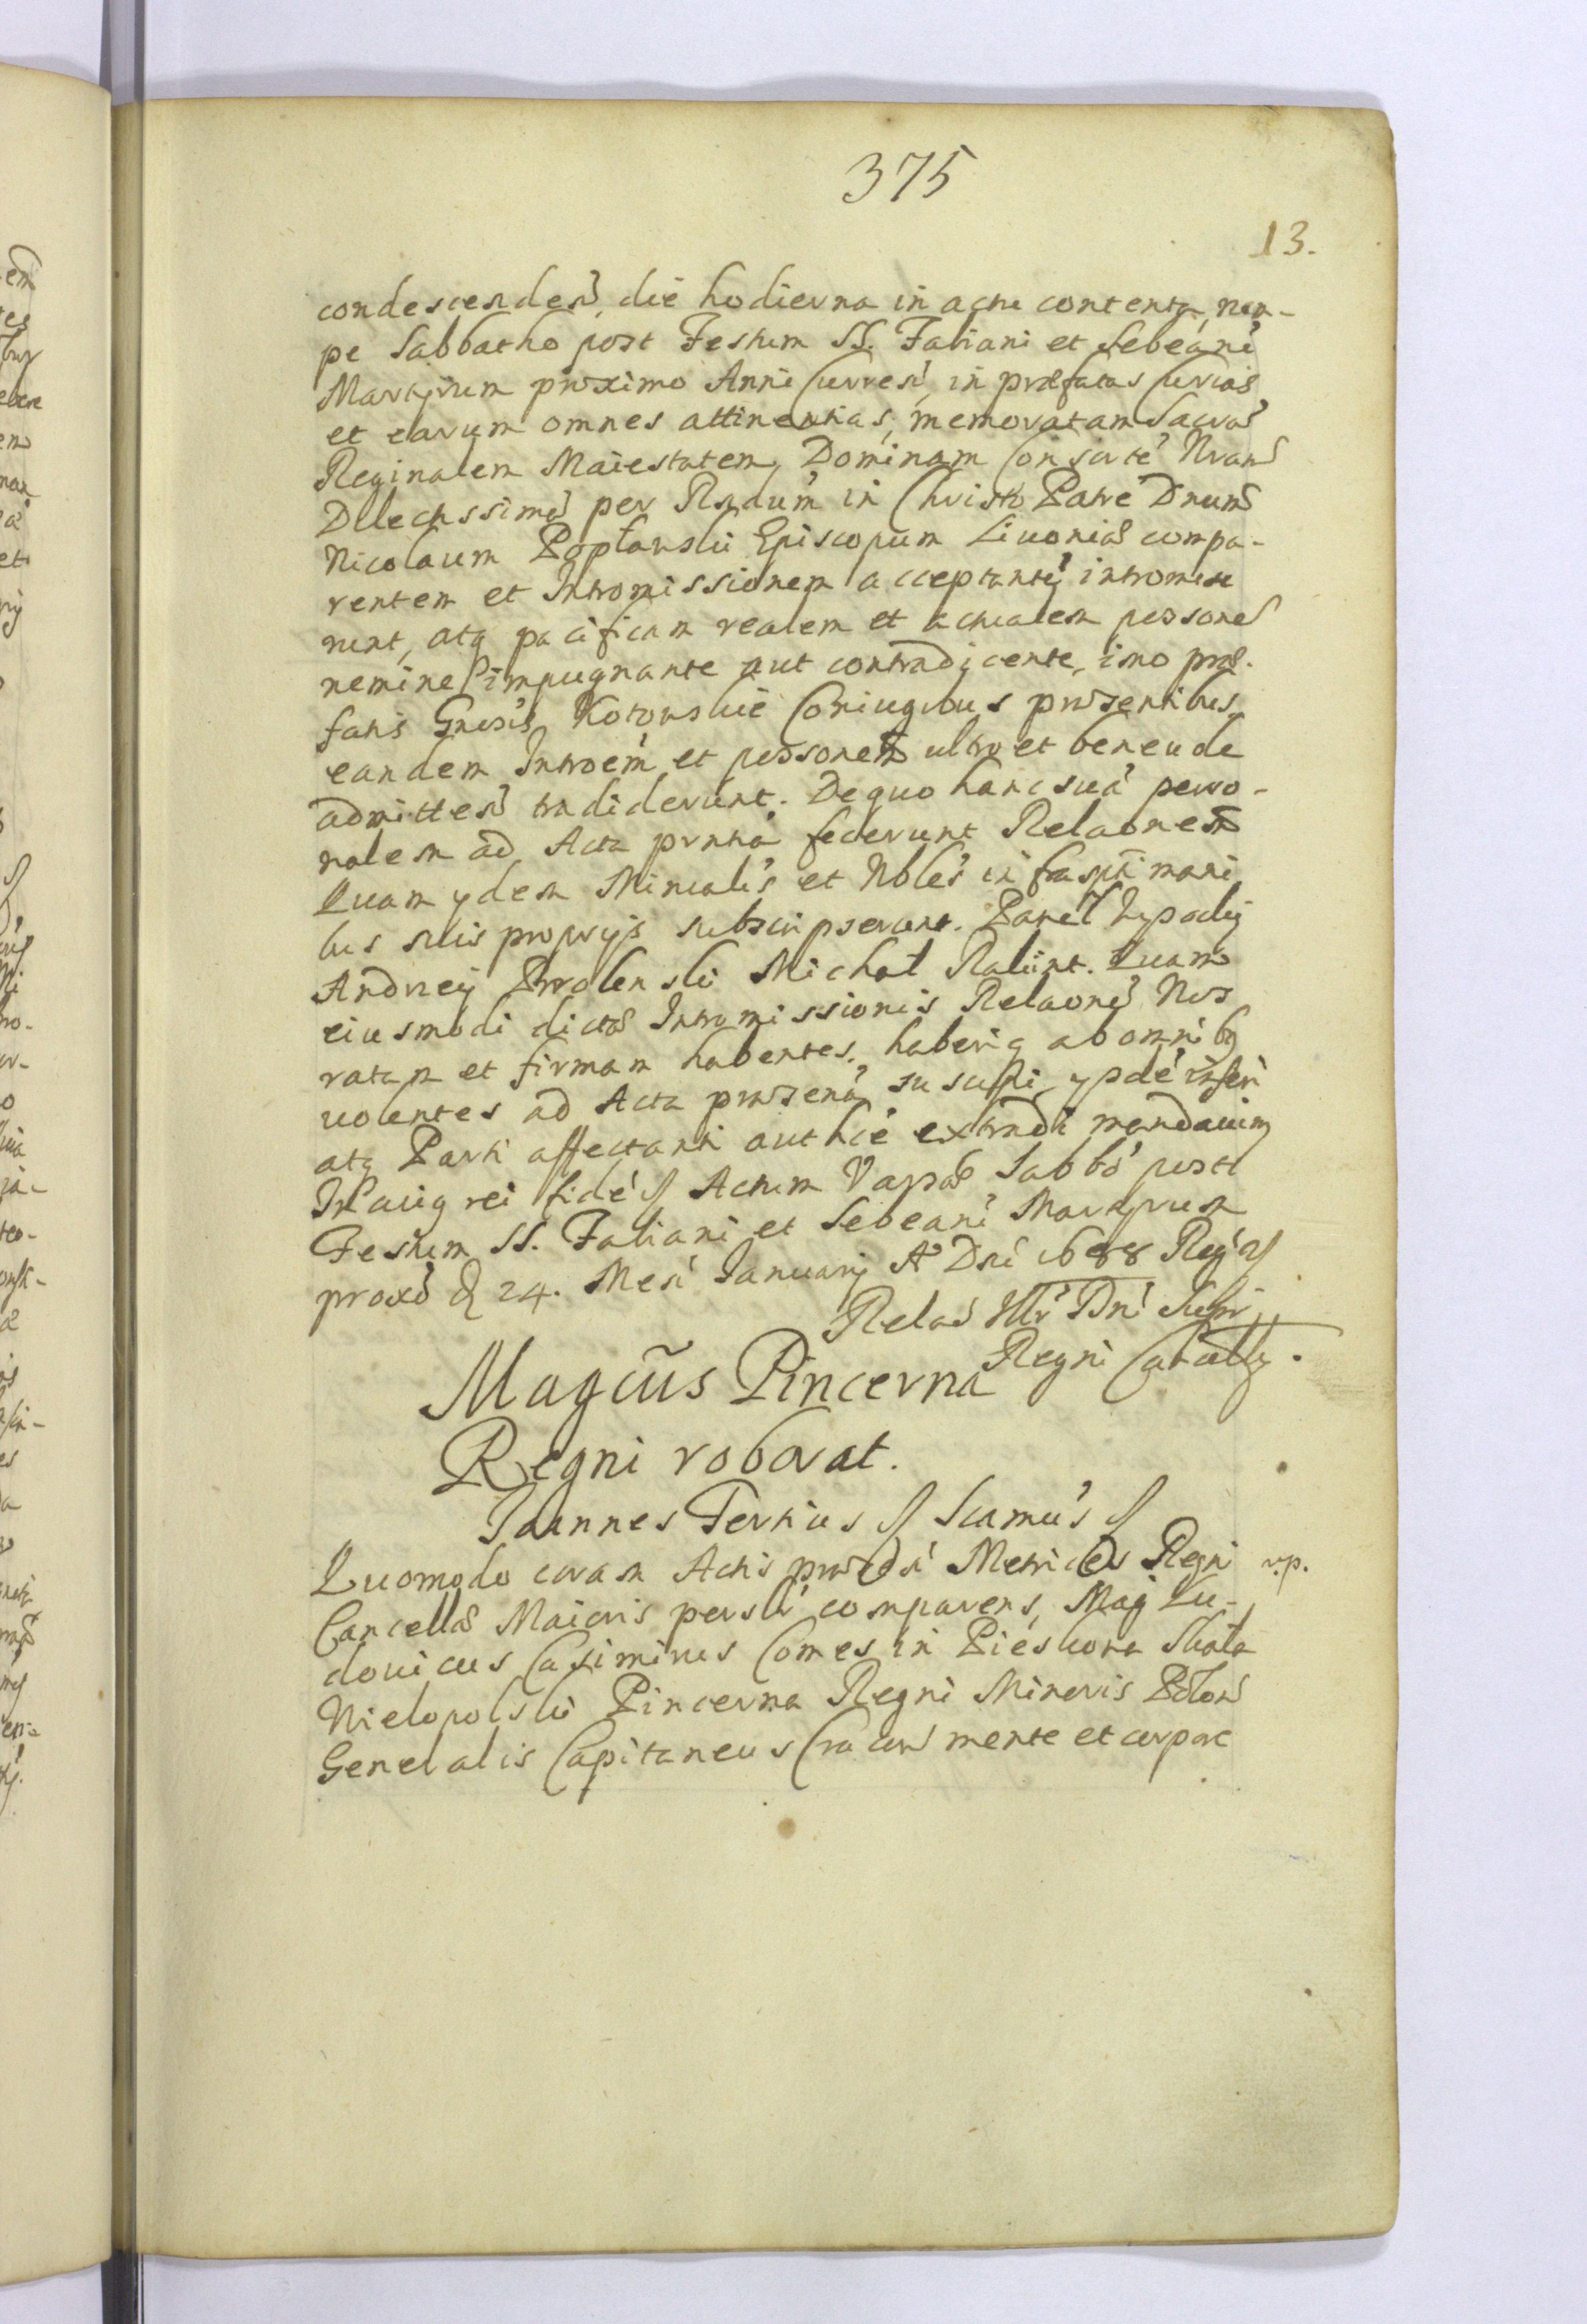 375
13.
condescenden̄, die hodierna in actu contenta, nem-
pe Sabbatho post Festum SS. Fabiani et Sebeáni
Martyrum proximo Anni Curreñ, in præfatas Curias
et earum omnes attinentias, memoratam Sacrā
Reginalem Maiestatem, Dominam Consortē Nram̄
Dilectissimā per Rndum in Christo Patrē Dnum
Nicolaum Popławski Episcopum Livoniæ compa-
rentem et Intromissionem acceptantē intromise
runt, atq pacificam realem et actualem possonē
nemine impugnante aut contradicente, imo præ-
fatis Gnosis Kotowskie Coniugibus præsentibus
eandem Introem et possonem ultro et beneuole
admitteñ tradiderunt. De quo hanc suā perso-
nalem ad Acta prntia fecerunt Relaonem
Quam ydem Minealis et Nbles infraspti mani
bus suis proprijs subscripserunt. Paweł
Andrzej Michał Quam
eiusmodi dictæ Intromissionis Relaonē Nos
ratam et firmam habentes, haberiq ab omnibq
uolentes ad Acta præsentia suscipi, ysdē inseri
atq Parti affectanti authcē extradi mandauimq
In cuiq rei fidē // Actum Varsae Sabbō post
Festum SS. Fabiani et Sebeani Martyrum
proxō d 24. Mesi Januarij Aº Dni 1688 Regi //
Relaō Illr Dni Supr
Regni Cancellarij.
Magcus Pincerna
Regni roborat.
Joannes Tertius // Scamus //
Quomodo coram Actis præsti Metrices Regni
v.p.
Cancellæ Maioris persłr comparens, Mag Lu-
douicus Casimirus Comes in Pieskowa Skała
Wielopolski Pincerna Regni Minoris Polon̄
Generalis Capitaneus Cracoñ mente et corpore